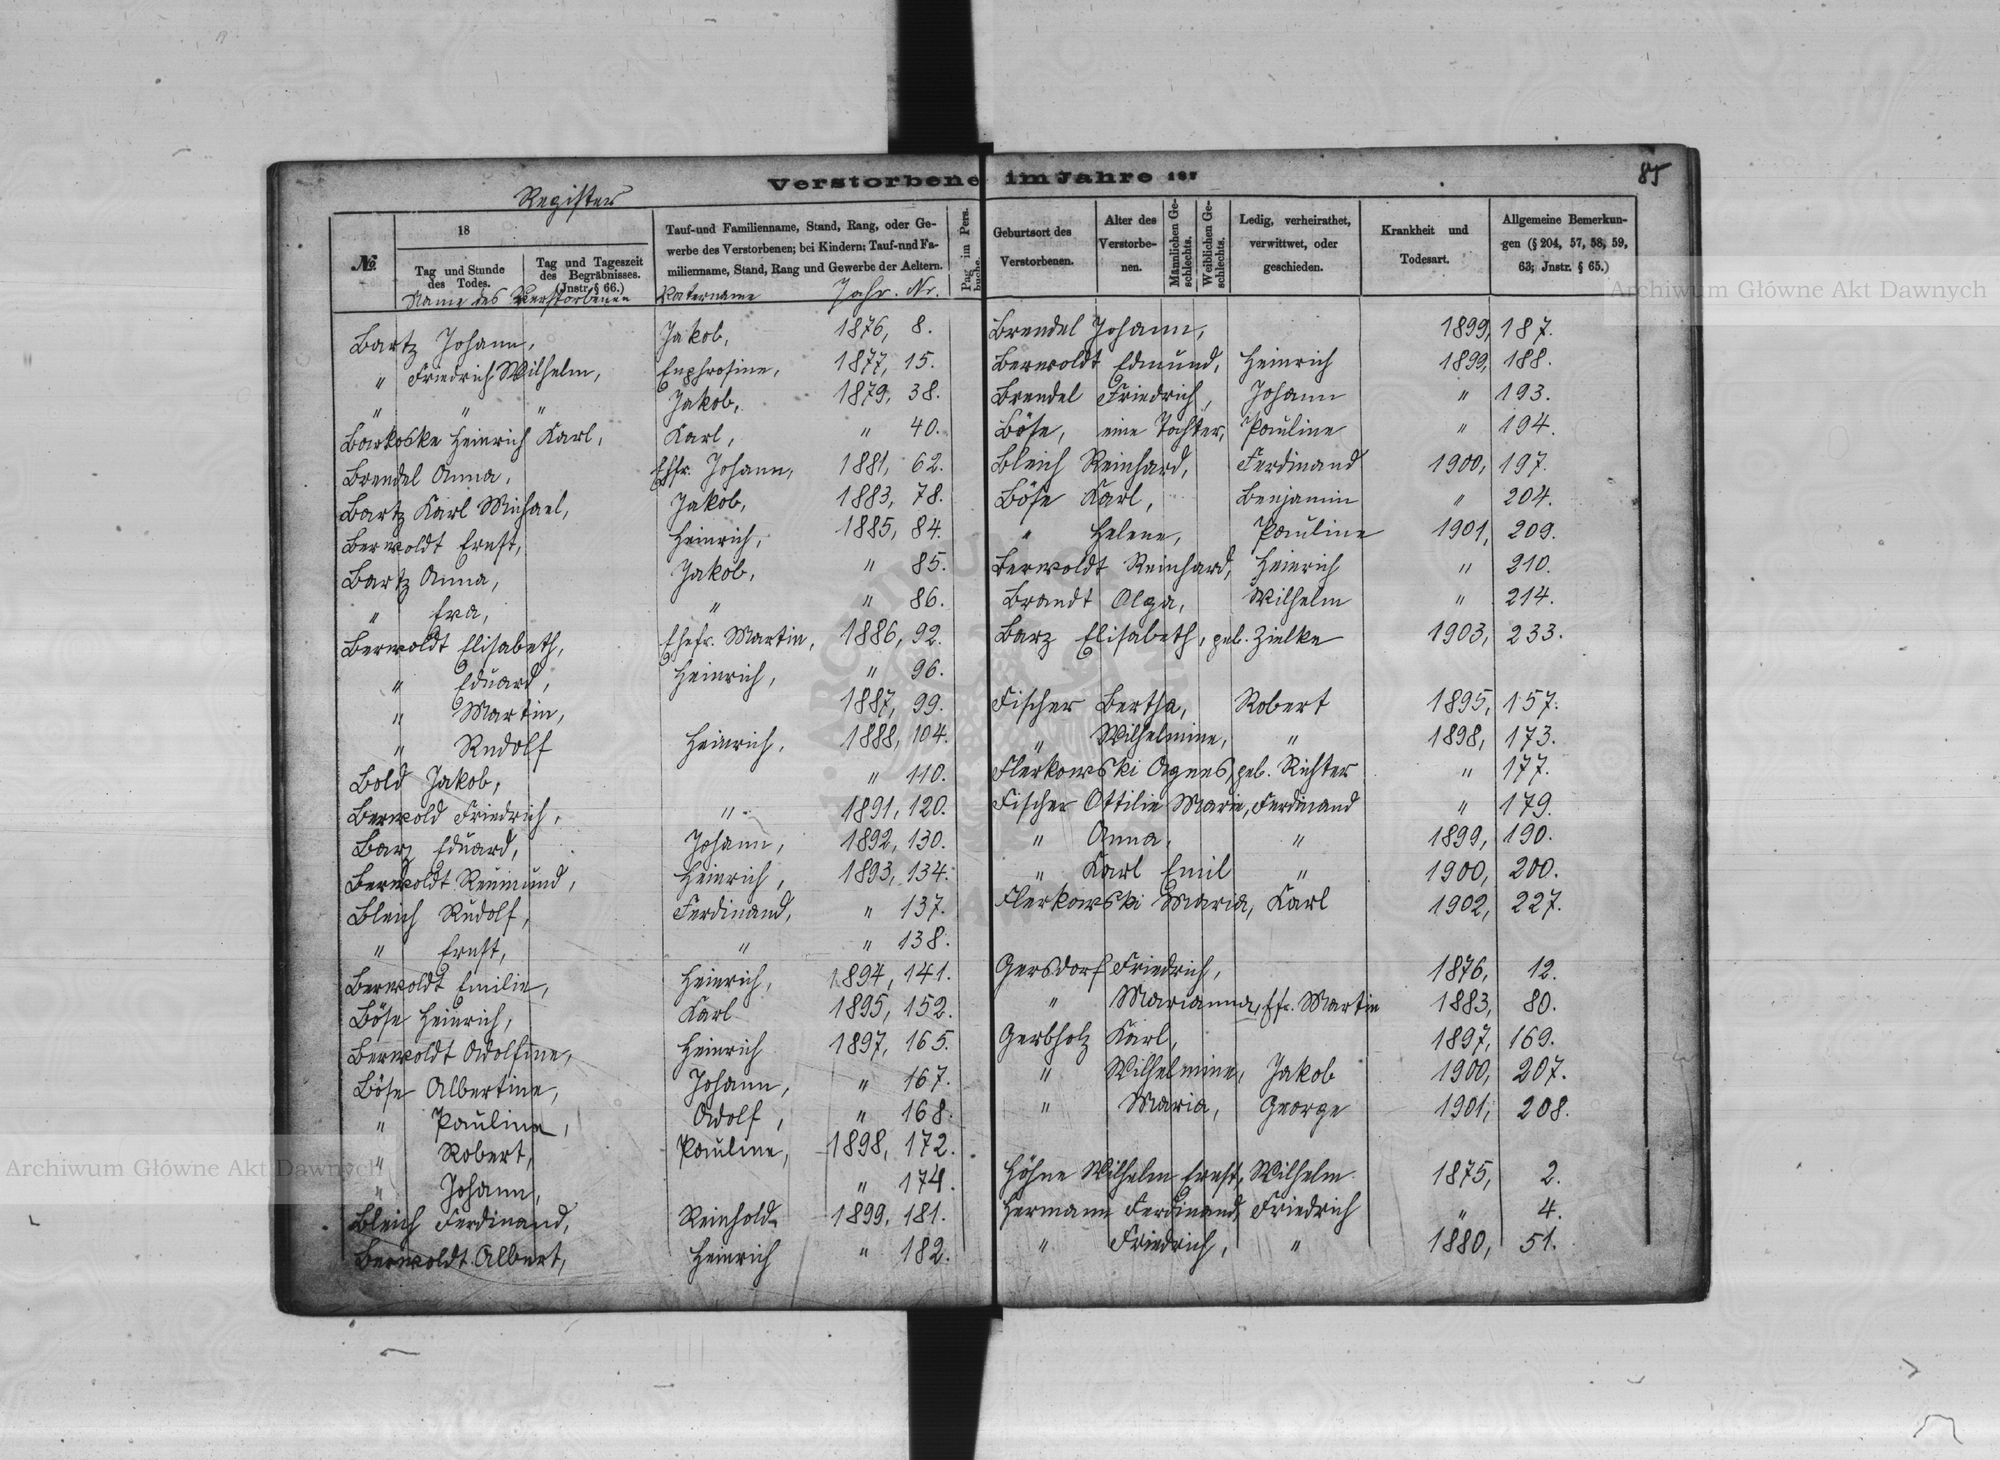 85
Verstorbene im Jahre 187
Register
№
18
Tag und Stunde des Todes.
Tag und Tageszeit des Begräbnisses. (Jnstr. § 66.)
Tauf-und Familienname, Stand, Rang, oder Ge-
werbe des Verstorbenen; bei Kindern: Tauf-und Fa-
milienname, Stand, Rang und Gewerbe der Aeltern.
Pag im Pers. buche.
Name des Verstorbenen Vatername Jahr. Nr.
Bartz Johann, Jakob, 1876, 8.
" Friedrich Wilhelm, Euphrosine, 1877, 15.
" " " Jakob, 1879, 38.
Barkoske Heinrich Karl, Karl, " 40.
Brendel Anna, Ehfr. Johann, 1881, 62.
Bartz Karl Michael, Jakob, 1883, 78.
Berwoldt Ernst, Heinrich, 1885, 84.
Bartz Anna, Jakob, " 85.
" Eva, " " 86.
Berwoldt Elisabeth, Ehefr. Martin, 1886, 92.
" Eduard, Heinrich, " 96.
" Martin, 1887, 99.
" Rudolf Heinrich, 1888, 104.
Bold Jakob, " 110.
Berwold Friedrich, " 1891, 120.
Barz Eduard, Johann, 1892, 130.
Berwoldt Reumund, Heinrich, 1893, 134.
Bleich Rudolf, Ferdinand, " 137.
" Ernst, " " 138.
Berwoldt Emilie, Heinrich, 1894, 141.
Böse Heinrich, Karl 1895, 152.
Berwoldt Adolfine, Heinrich 1897, 165.
Böse Albertine, Johann, " 167.
" Pauline, Adolf, " 168.
" Robert, Pauline, 1898, 172.
" Johann, " 174.
Bleich Ferdinand, Reinhold 1899, 181.
Berwoldt Albert, Heinrich " 182.
Geburtsort des Verstorbenen.
Alter des Verstorbe-nen.
Männlichen Ge-schlechts.
Weiblichen Ge-schlechts.
Ledig, verheirathet, verwittwet, oder geschieden.
Krankheit und Todesart.
Allgemeine Bemerkun-
gen (§ 204, 57, 58, 59,
63; Jnstr. § 65.)
Brendel Johann, 1899, 187.
Berwoldt Edmund, Heinrich 1899, 188.
Brendel Friedrich, Johann " 193.
Böse, eine Tochter, Pauline " 194.
Bleich Reinhard, Ferdinand 1900, 197.
Böse Karl, Benjamin " 204.
" Helene, Pauline 1901, 209.
Berwoldt Reinhard, Heinrich " 210.
Brandt Olga, Wilhelm " 214.
Barz Elisabeth, geb. Zielke 1903, 233.
Fischer Bertha, Robert 1895, 157.
" Wilhelmine, " 1898, 173.
Flerkowski Agnes, geb. Richter " 177.
Fischer Ottilie Marie, Ferdinand " 179.
" Anna, " 1899, 190.
" Karl Emil " 1900, 200.
Flerkowski Maria, Karl 1902, 227.
Gersdorf Friedrich, 1876, 12.
" Marianna, Efr. Martin 1883, 80.
Gerbholz Karl, 1897, 169.
" Wilhelmine, Jakob 1900, 207.
" Maria, George 1901, 208.
Höhne Wilhelm Ernst, Wilhelm 1875, 2.
Hermann Ferdinand, Friedrich " 4.
" Friedrich, " 1880, 51.
Archiwum Główne Akt Dawnych
Archiwum Główne Akt Dawnych